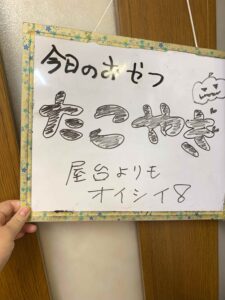 今日のおやつ
たこやき
屋台よりも
オイシイ8